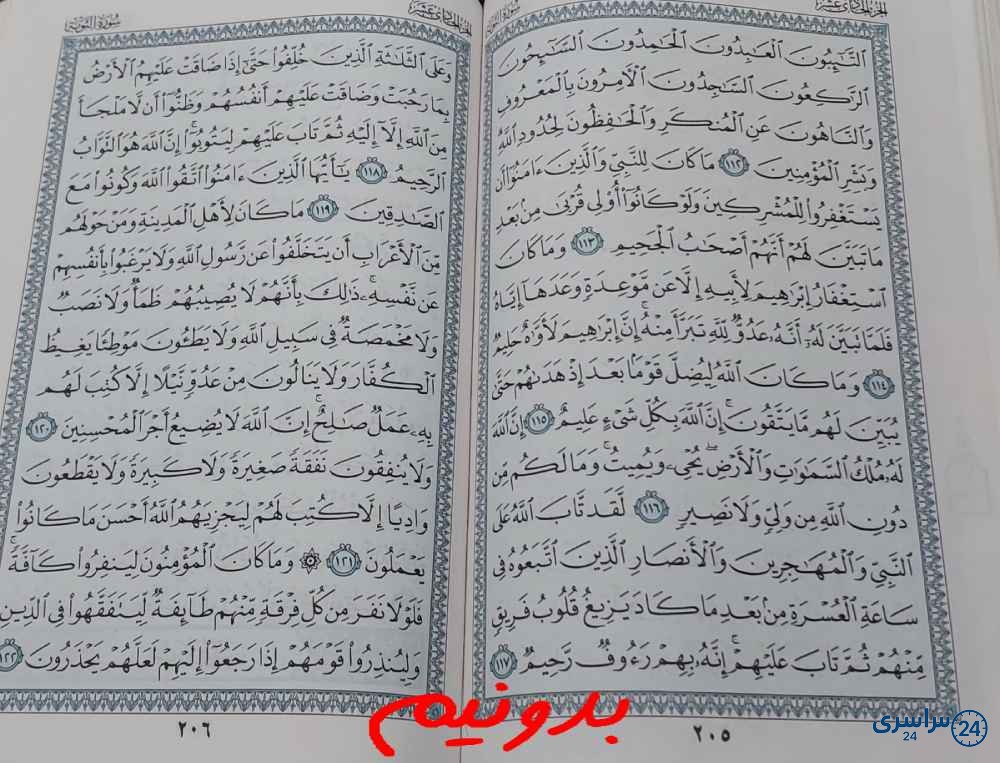 الجزء الحادي عشر
سورة التوبة
التَّٰٓئِبُونَ الْعَٰبِدُونَ الْحَٰمِدُونَ السَّٰٓئِحُونَ
الرَّٰكِعُونَ السَّٰجِدُونَ الْآمِرُونَ بِالْمَعْرُوفِ
وَالنَّاهُونَ عَنِ الْمُنكَرِ وَالْحَٰفِظُونَ لِحُدُودِ اللَّهِ
وَبَشِّرِ الْمُؤْمِنِينَ ١١٢ مَا كَانَ لِلنَّبِيِّ وَالَّذِينَ ءَامَنُوٓا۟ أَن
يَسْتَغْفِرُوا۟ لِلْمُشْرِكِينَ وَلَوْ كَانُوٓا۟ أُو۟لِى قُرْبَىٰ مِنۢ بَعْدِ
مَا تَبَيَّنَ لَهُمْ أَنَّهُمْ أَصْحَٰبُ الْجَحِيمِ ١١٣ وَمَا كَانَ
اسْتِغْفَارُ إِبْرَٰهِيمَ لِأَبِيهِ إِلَّا عَن مَّوْعِدَةٍ وَعَدَهَآ إِيَّاهُ
فَلَمَّا تَبَيَّنَ لَهُۥٓ أَنَّهُۥ عَدُوٌّ لِّلَّهِ تَبَرَّأَ مِنْهُ ۚ إِنَّ إِبْرَٰهِيمَ لَأَوَّٰهٌ حَلِيمٌ
١١٤ وَمَا كَانَ اللَّهُ لِيُضِلَّ قَوْمًۢا بَعْدَ إِذْ هَدَىٰهُمْ حَتَّىٰ
يُبَيِّنَ لَهُم مَّا يَتَّقُونَ ۚ إِنَّ اللَّهَ بِكُلِّ شَىْءٍ عَلِيمٌ ١١٥ إِنَّ اللَّهَ
لَهُۥ مُلْكُ السَّمَٰوَٰتِ وَالْأَرْضِ ۖ يُحْىِۦ وَيُمِيتُ ۚ وَمَا لَكُم مِّن
دُونِ اللَّهِ مِن وَلِىٍّ وَلَا نَصِيرٍ ١١٦ لَّقَد تَّابَ اللَّهُ عَلَى
النَّبِىِّ وَالْمُهَٰجِرِينَ وَالْأَنصَارِ الَّذِينَ اتَّبَعُوهُ فِى
سَاعَةِ الْعُسْرَةِ مِنۢ بَعْدِ مَا كَادَ يَزِيغُ قُلُوبُ فَرِيقٍ
مِّنْهُمْ ثُمَّ تَابَ عَلَيْهِمْ ۚ إِنَّهُۥ بِهِمْ رَءُوفٌ رَّحِيمٌ ١١٧
٢٠٥
الجزء الحادي عشر
سورة التوبة
وَعَلَى الثَّلَٰثَةِ الَّذِينَ خُلِّفُوا۟ حَتَّىٰٓ إِذَا ضَاقَتْ عَلَيْهِمُ الْأَرْضُ
بِمَا رَحُبَتْ وَضَاقَتْ عَلَيْهِمْ أَنفُسُهُمْ وَظَنُّوٓا۟ أَن لَّا مَلْجَأَ
مِنَ اللَّهِ إِلَّآ إِلَيْهِ ثُمَّ تَابَ عَلَيْهِمْ لِيَتُوبُوٓا۟ ۚ إِنَّ اللَّهَ هُوَ التَّوَّابُ
الرَّحِيمُ ١١٨ يَٰٓأَيُّهَا الَّذِينَ ءَامَنُوا۟ اتَّقُوا۟ اللَّهَ وَكُونُوا۟ مَعَ
الصَّٰدِقِينَ ١١٩ مَا كَانَ لِأَهْلِ الْمَدِينَةِ وَمَنْ حَوْلَهُم
مِّنَ الْأَعْرَابِ أَن يَتَخَلَّفُوا۟ عَن رَّسُولِ اللَّهِ وَلَا يَرْغَبُوا۟ بِأَنفُسِهِمْ
عَن نَّفْسِهِۦ ۚ ذَٰلِكَ بِأَنَّهُمْ لَا يُصِيبُهُمْ ظَمَأٌ وَلَا نَصَبٌ
وَلَا مَخْمَصَةٌ فِى سَبِيلِ اللَّهِ وَلَا يَطَـُٔونَ مَوْطِئًا يَغِيظُ
الْكُفَّارَ وَلَا يَنَالُونَ مِنْ عَدُوٍّ نَّيْلًا إِلَّا كُتِبَ لَهُم
بِهِۦ عَمَلٌ صَٰلِحٌ ۚ إِنَّ اللَّهَ لَا يُضِيعُ أَجْرَ الْمُحْسِنِينَ ١٢٠
وَلَا يُنفِقُونَ نَفَقَةً صَغِيرَةً وَلَا كَبِيرَةً وَلَا يَقْطَعُونَ
وَادِيًا إِلَّا كُتِبَ لَهُمْ لِيَجْزِيَهُمُ اللَّهُ أَحْسَنَ مَا كَانُوا۟
يَعْمَلُونَ ١٢١ ۞ وَمَا كَانَ الْمُؤْمِنُونَ لِيَنفِرُوا۟ كَآفَّةً ۚ
فَلَوْلَا نَفَرَ مِن كُلِّ فِرْقَةٍ مِّنْهُمْ طَآئِفَةٌ لِّيَتَفَقَّهُوا۟ فِى الدِّينِ
وَلِيُنذِرُوا۟ قَوْمَهُمْ إِذَا رَجَعُوٓا۟ إِلَيْهِمْ لَعَلَّهُمْ يَحْذَرُونَ ١٢٢
٢٠٦
بدونیم
سراسری 24
24